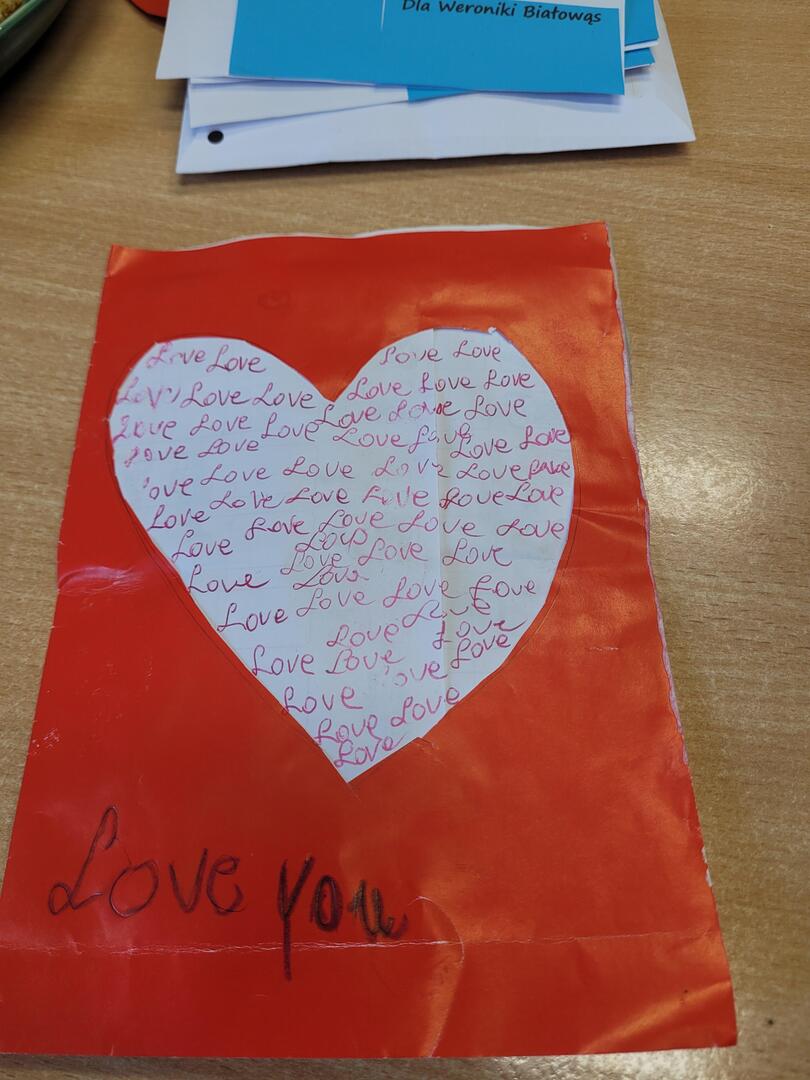 Dla Weroniki Białowąs
Love Love Love Love
Love Love Love Love Love Love
Love Love Love Love Love Love
Love Love Love Love Love Love
Love Love Love Love Love
Love Love Love Love Love Love
Love Love Love Love Love
Love Love Love Love Love
Love Love
Love Love Love Love Love
Love Love
Love Love
Love Love Love
Love
Love Love
Love
Love you